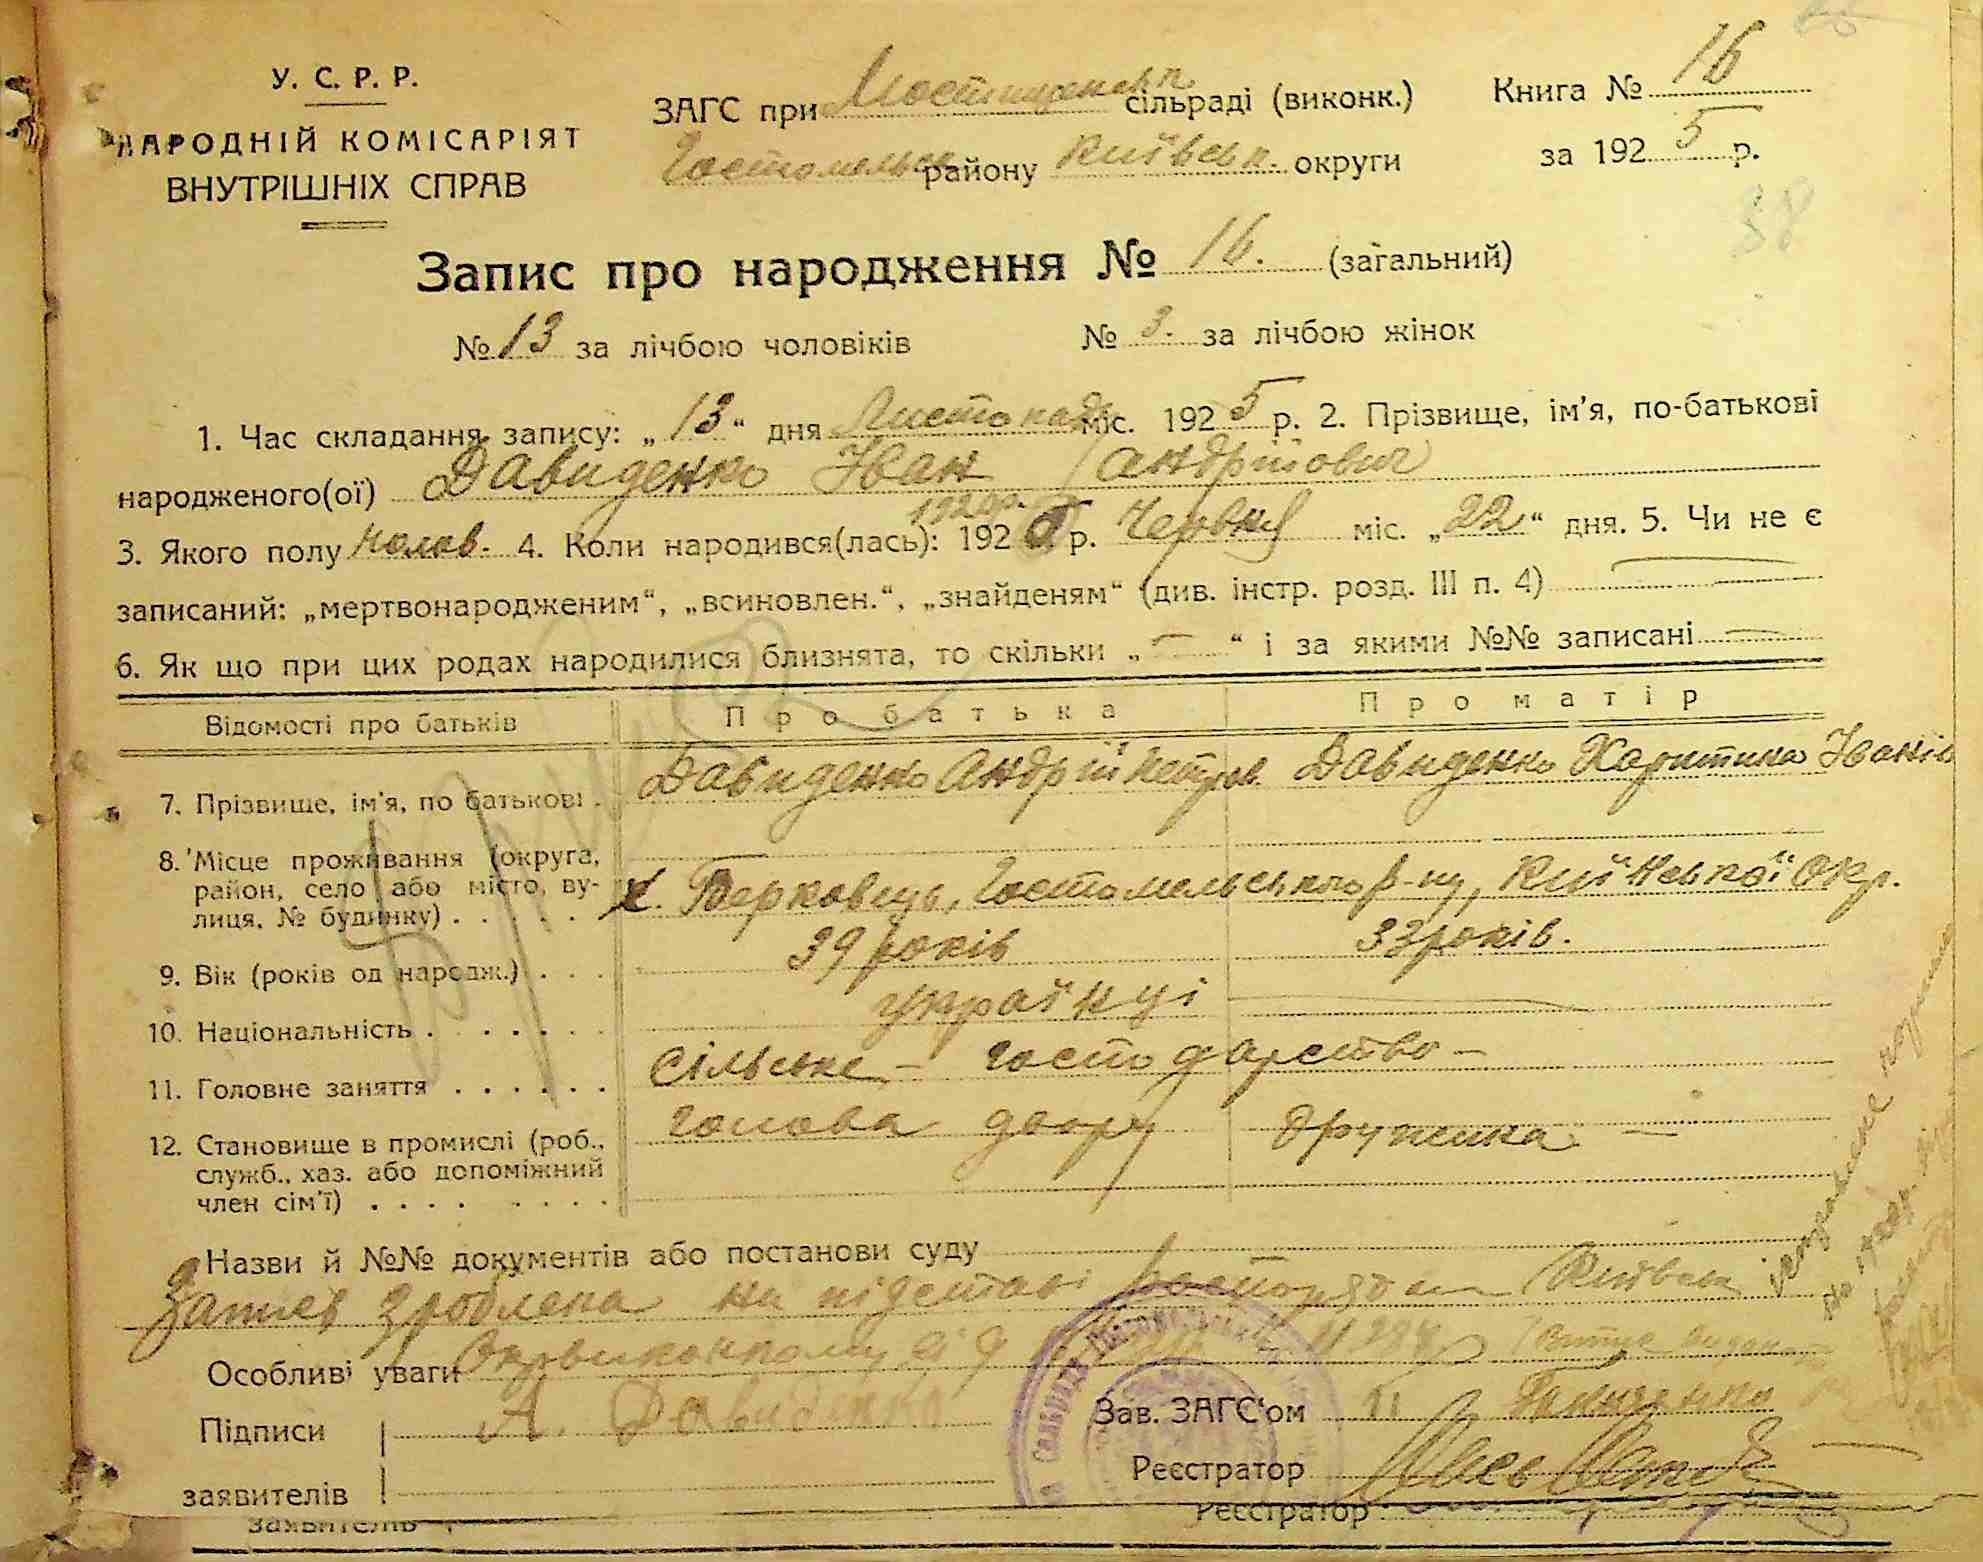 У. С. Р. Р.
НАРОДНІЙ КОМІСАРІЯТ
ВНУТРІШНІХ СПРАВ
ЗАГС при Мостищенськ сільраді (виконк.)
Гостомельськ району Київськ. округи
Книга № 16
за 1925 р.
38
Запис про народження № 16. (загальний)
№ 13 за лічбою чоловіків № 3. за лічбою жінок
1. Час складання запису: „13“ дня Листопада міс. 1925 р. 2. Прізвище, ім'я, по-батькові
народженого(ої) Давиденко Іван Андрійович
1924р.
3. Якого полу чолов. 4. Коли народився(лась): 1925 р. Червня міс. „22“ дня. 5. Чи не є
записаний: „мертвонародженим“, „всиновлен.“, „знайденям“ (див. інстр. розд. III п. 4) —
6. Як що при цих родах народилися близнята, то скільки „—“ і за якими №№ записані —
Відомості про батьків Про батька Про матір
7. Прізвище, ім'я, по батькові . Давиденко Андрій Петров. Давиденко Харитина Іванів
8. Місце проживання (округа,
район, село або місто, ву-
лиця, № будинку) . . . . . х. Берковець, Гостомельського р-ну, Київської Окр.
9. Вік (років од народж.) . . . 39 років 33 років.
10. Національність . . . . . . українці
11. Головне заняття . . . . . . Сільське – господарство –
12. Становище в промислі (роб.,
служб., хаз. або допоміжний
член сім'ї) . . . . . . . . голова двору дружина –
Назви й №№ документів або постанови суду
Запись зроблена на підставі Киівськ
Особливі уваги Окрвиконкому від
Підписи А. Давиденко Зав. ЗАГС'ом
Реєстратор
заявителів
Реєстратор
заявителів